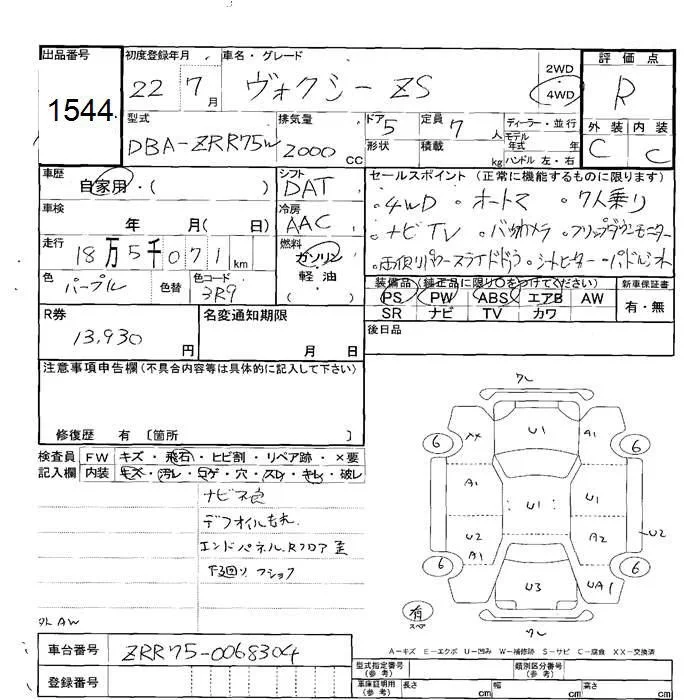 出品番号
1544
初度登録年月
22 7 月
車名・グレード
ヴォクシー ZS
2WD
4WD
評価点
R
外装 内装
C C
型式
DBA-ZRR75W
排気量
2000 cc
ドア
5
定員
7 人
形状
積載
kg
ディーラー・並行
モデル
年式 年
ハンドル 左・右
車歴
自家用・( )
シフト
DAT
車検
年 月( 日)
冷房
AAC
走行
18万5千071 km
燃料
ガソリン
軽油
( )
色
パープル
色替
色コード
3R9
セールスポイント (正常に機能するものに限ります)
・4WD ・オートマ ・7人乗り
・ナビTV ・バックカメラ ・フリップダウンモニター
・両側パワースライドドア ・シートヒーター ・パドルシフト
装備品 (純正品に限り○をつけてください)
PS PW ABS エアB AW
SR ナビ TV カワ
新車保証書
有・無
R券
13,930 円
名変通知期限
月 日
後日品
注意事項申告欄 (不具合内容等は具体的に記入して下さい)
修復歴 有 〔箇所 〕
検査員
記入欄
FW キズ・飛石・ヒビ割・リペア跡・×要
内装 キズ・汚レ・コゲ・穴・スレ・キレ・破レ
ナビ不良
デフオイルもれ
エンドパネル、Rフロア歪
下回リ フショク
外AW
車台番号
ZRR75-0068304
登録番号
クレ
6 XX U1 A1 6
A1 U1 U1
U2 A2 U2
A1
6 U3 UA1 6
有
スペア
クレ
A-キズ E-エクボ U-凹み W-補修跡 S-サビ C-腐食 XX-交換済
型式指定番号
(参考)
類別区分番号
(参考)
車庫証明用
(参考)
長さ cm 幅 cm 高さ cm